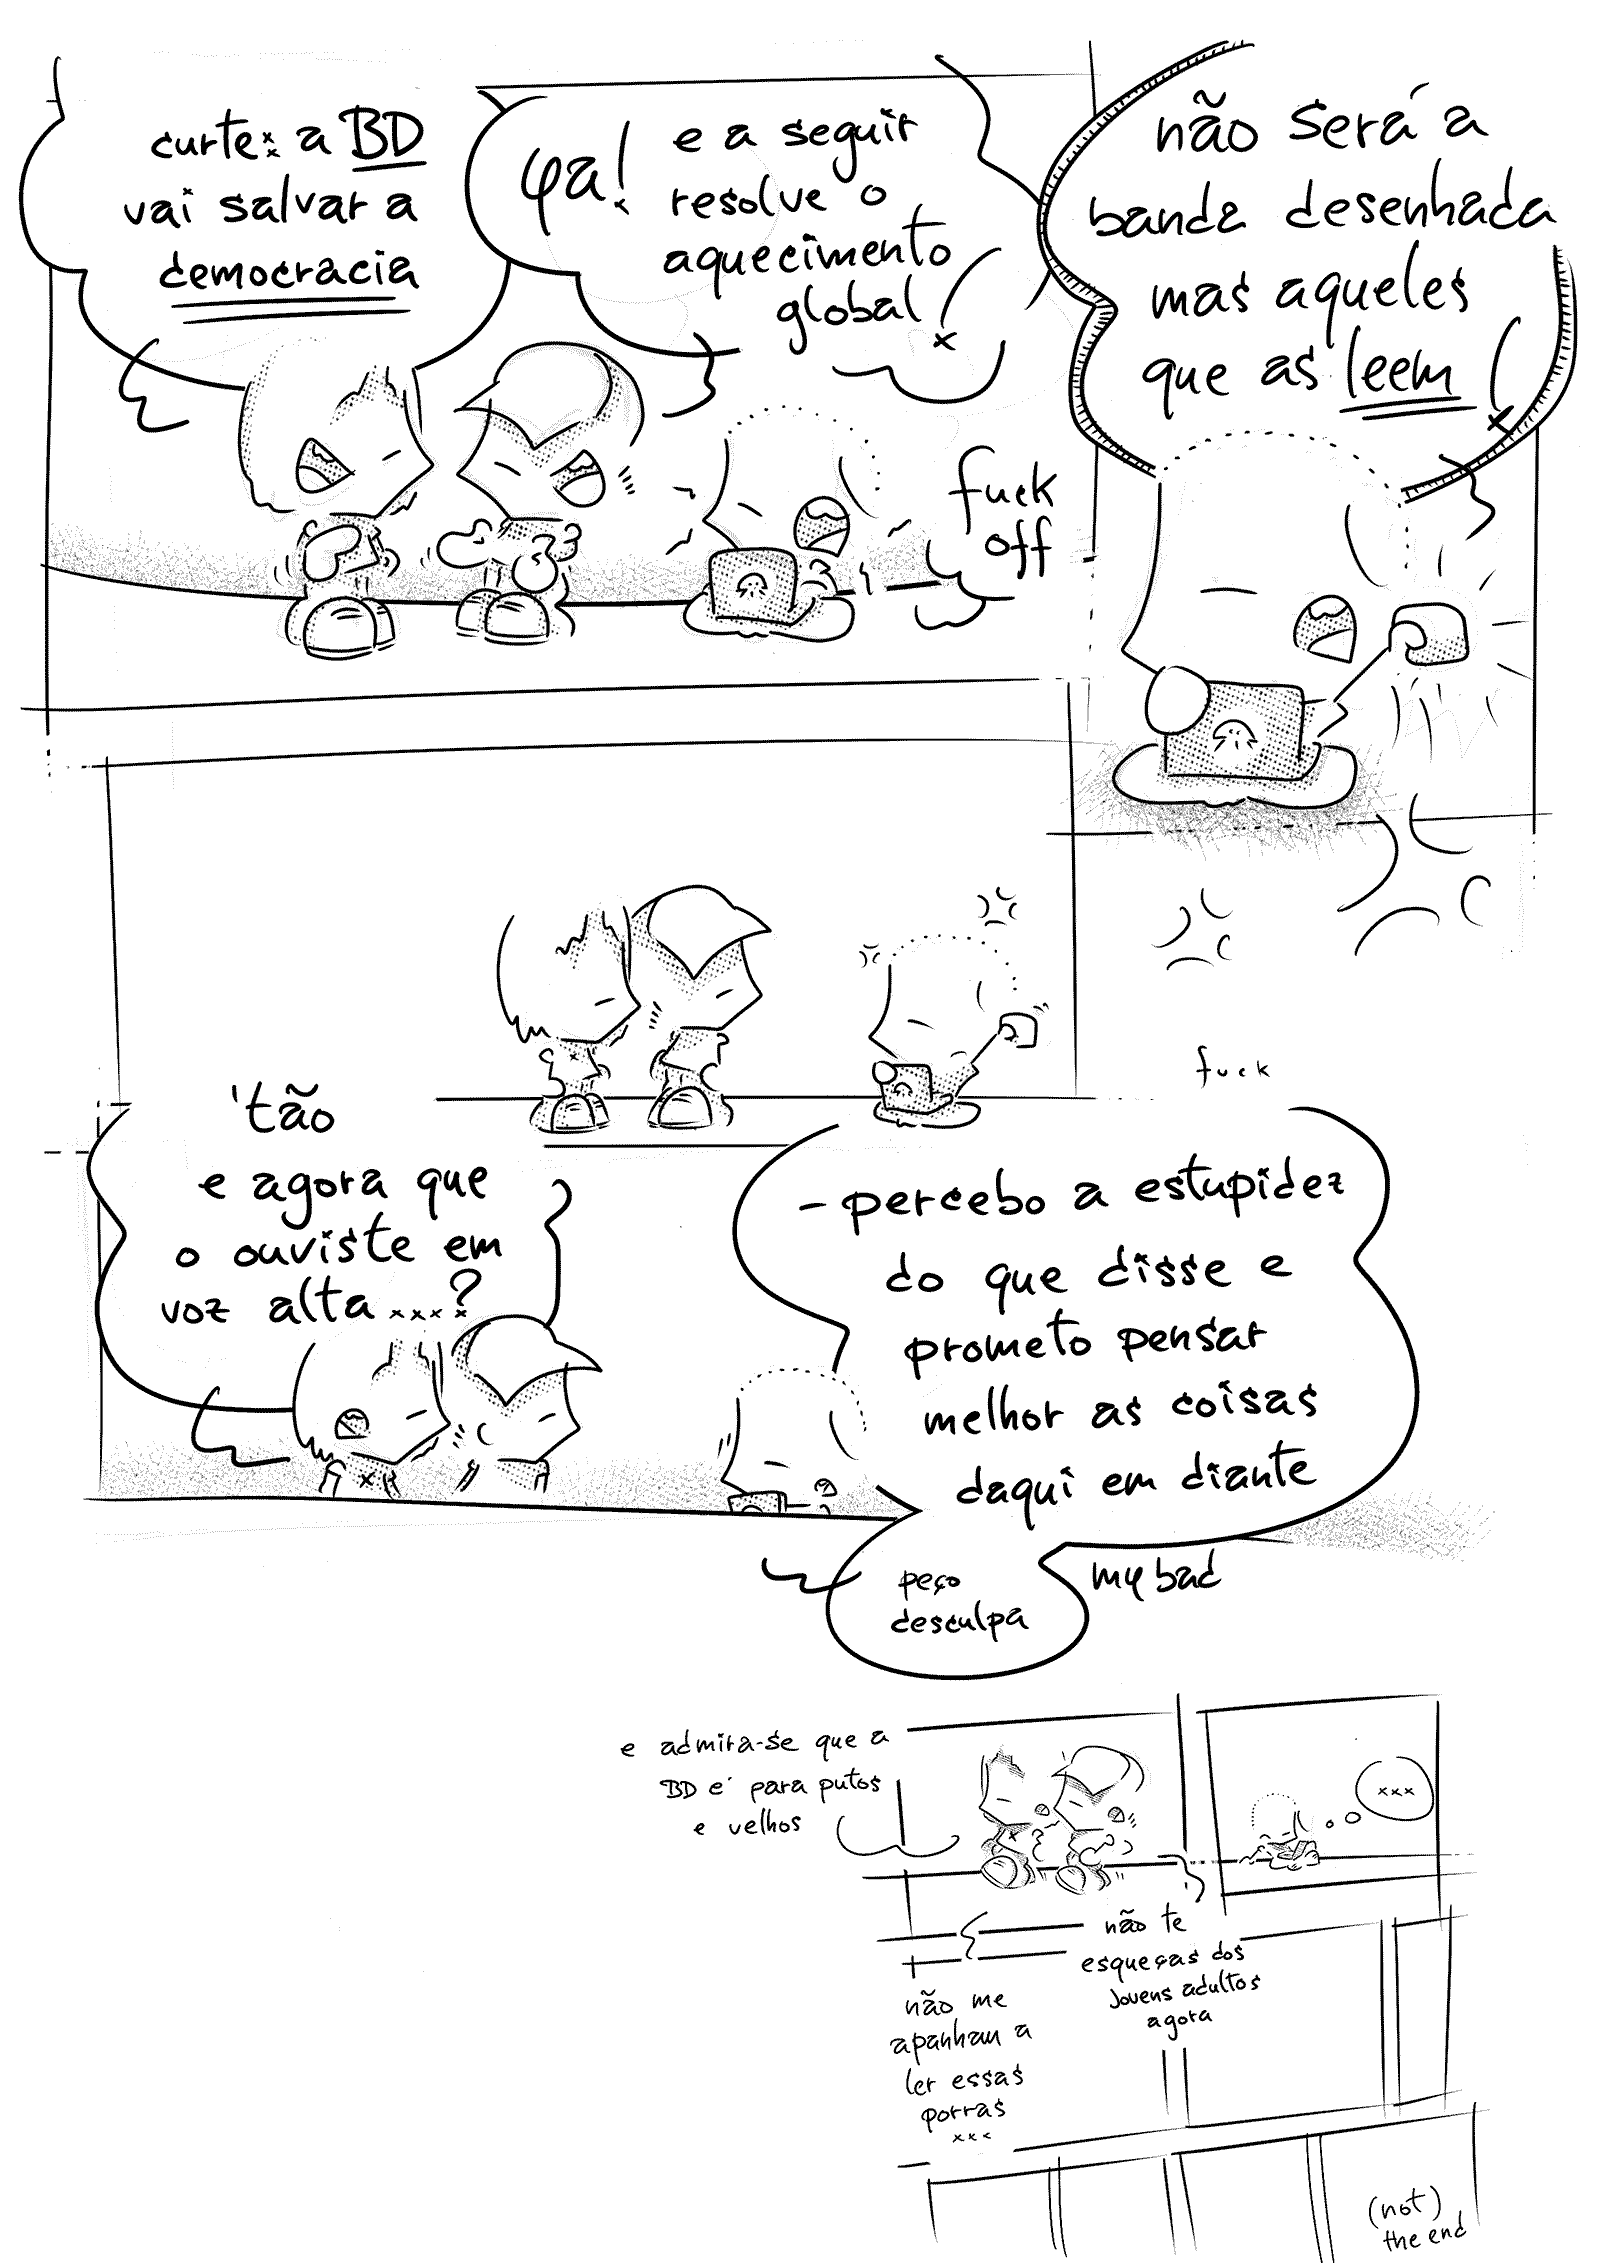 curte: a BD
vai salvar a
democracia
ya!
e a seguir
resolve o
aquecimento
global!
fuck
off
não será a
banda desenhada
mas aqueles
que as leem!
fuck
'tão
e agora que
o ouviste em
voz alta ...?
- percebo a estupidez
do que disse e
prometo pensar
melhor as coisas
daqui em diante
peço
desculpa
my bad
e admira-se que a
BD é para putos
e velhos
xxx
não te
esqueças dos
jovens adultos
agora
não me
apanham a
ler essas
porras
xxx
(not)
the end